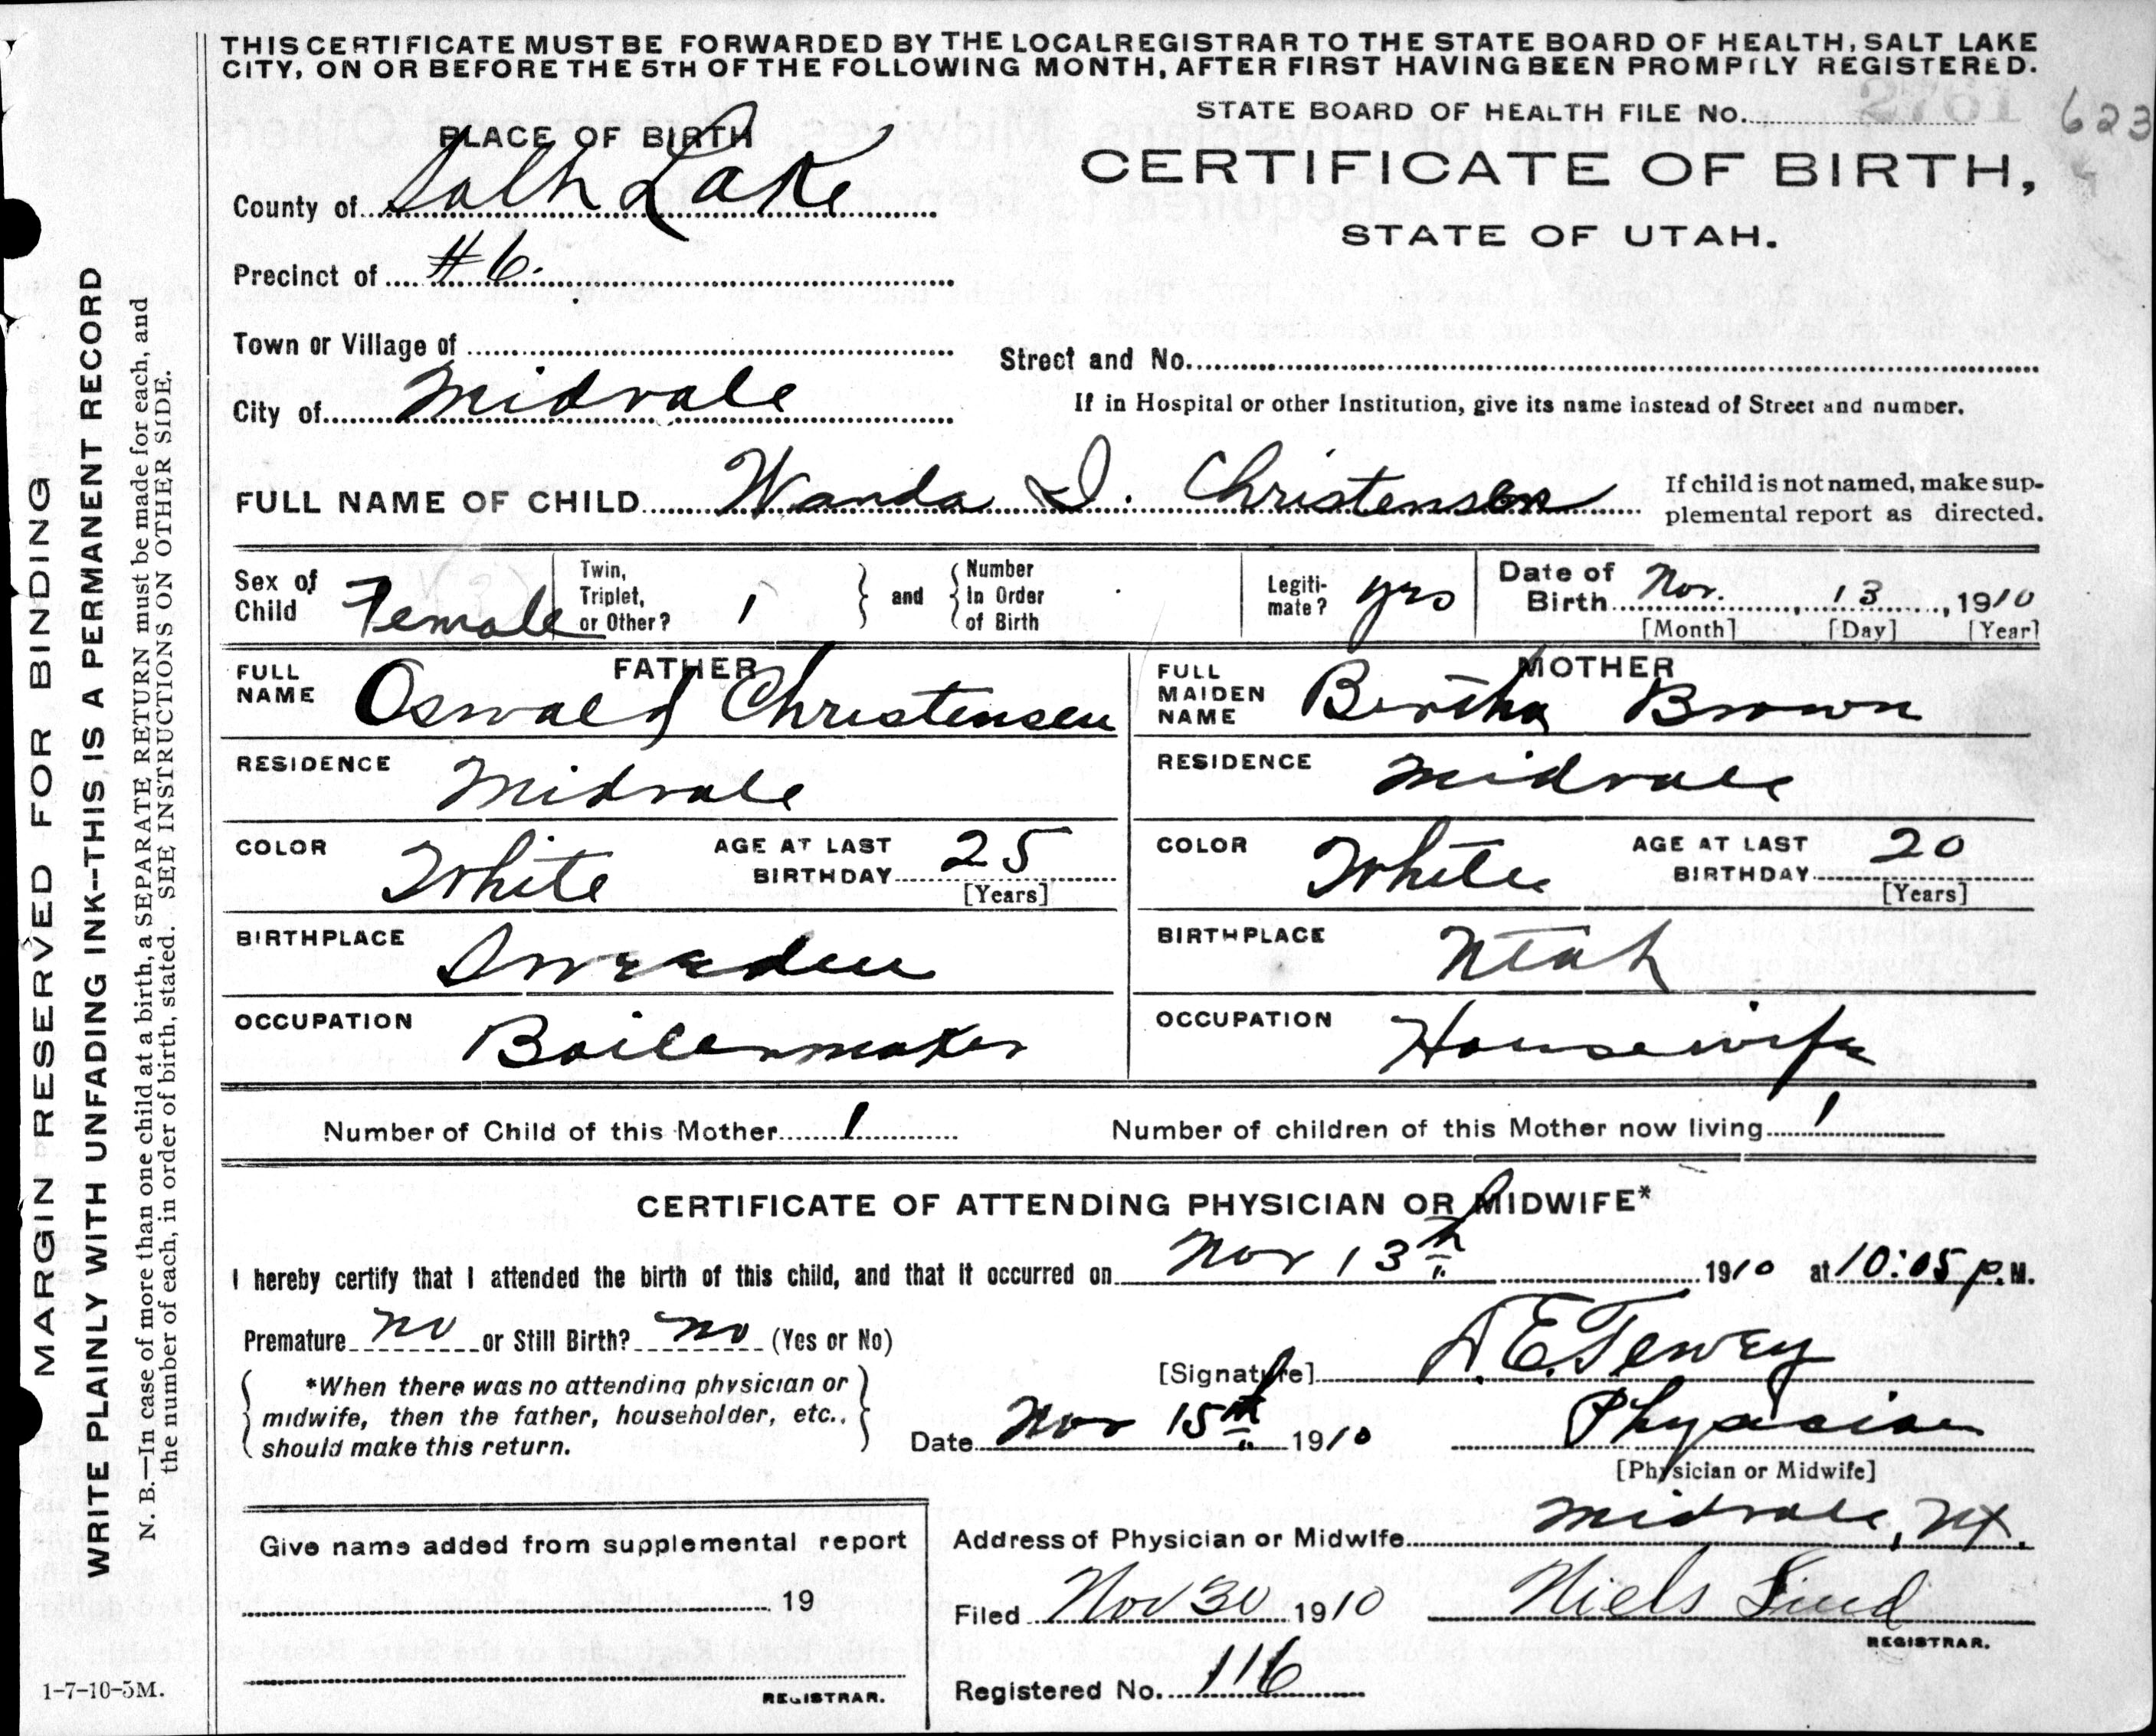 THIS CERTIFICATE MUST BE FORWARDED BY THE LOCAL REGISTRAR TO THE STATE BOARD OF HEALTH, SALT LAKE
CITY, ON OR BEFORE THE 5TH OF THE FOLLOWING MONTH, AFTER FIRST HAVING BEEN PROMPTLY REGISTERED.
STATE BOARD OF HEALTH FILE No. 2761 623
PLACE OF BIRTH
CERTIFICATE OF BIRTH,
STATE OF UTAH.
County of Salt Lake
Precinct of #6.
Town or Village of
Street and No.
City of Midvale
If in Hospital or other Institution, give its name instead of Street and number.
FULL NAME OF CHILD Wanda I. Christensen
If child is not named, make sup-
plemental report as directed.
Sex of Child Female
Twin, Triplet, or Other? 1 and Number In Order of Birth
Legiti-mate? yes
Date of Birth Nov. 13, 1910
[Month] [Day] [Year]
FATHER
FULL NAME Oswald Christensen
RESIDENCE Midvale
COLOR White AGE AT LAST BIRTHDAY 25
[Years]
BIRTHPLACE Sweeden
OCCUPATION Boilermaker
MOTHER
FULL MAIDEN NAME Bertha Brown
RESIDENCE Midvale
COLOR White AGE AT LAST BIRTHDAY 20
[Years]
BIRTHPLACE Utah
OCCUPATION Housewife
Number of Child of this Mother 1
Number of children of this Mother now living 1
CERTIFICATE OF ATTENDING PHYSICIAN OR MIDWIFE*
I hereby certify that I attended the birth of this child, and that it occurred on Nov 13th 1910 at 10:05 P.M.
Premature no or Still Birth? no (Yes or No)
*When there was no attending physician or
midwife, then the father, householder, etc.,
should make this return.
[Signature]
Date Nov 15th 1910
Physician
[Physician or Midwife]
Address of Physician or Midwife Midvale, Ut.
Give name added from supplemental report
19
REGISTRAR.
Filed Nov 30 1910 Niels Lind
REGISTRAR.
Registered No. 116
1-7-10-5M.
MARGIN RESERVED FOR BINDING
WRITE PLAINLY WITH UNFADING INK--THIS IS A PERMANENT RECORD
N. B.—In case of more than one child at a birth, a SEPARATE RETURN must be made for each, and
the number of each, in order of birth, stated. SEE INSTRUCTIONS ON OTHER SIDE.